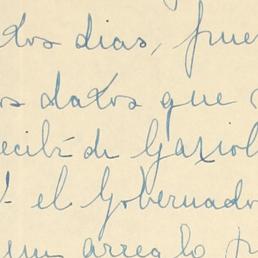 dos dias, fue
os datos que
recibí de Gaxiol
el Gobernado
un arreglo p